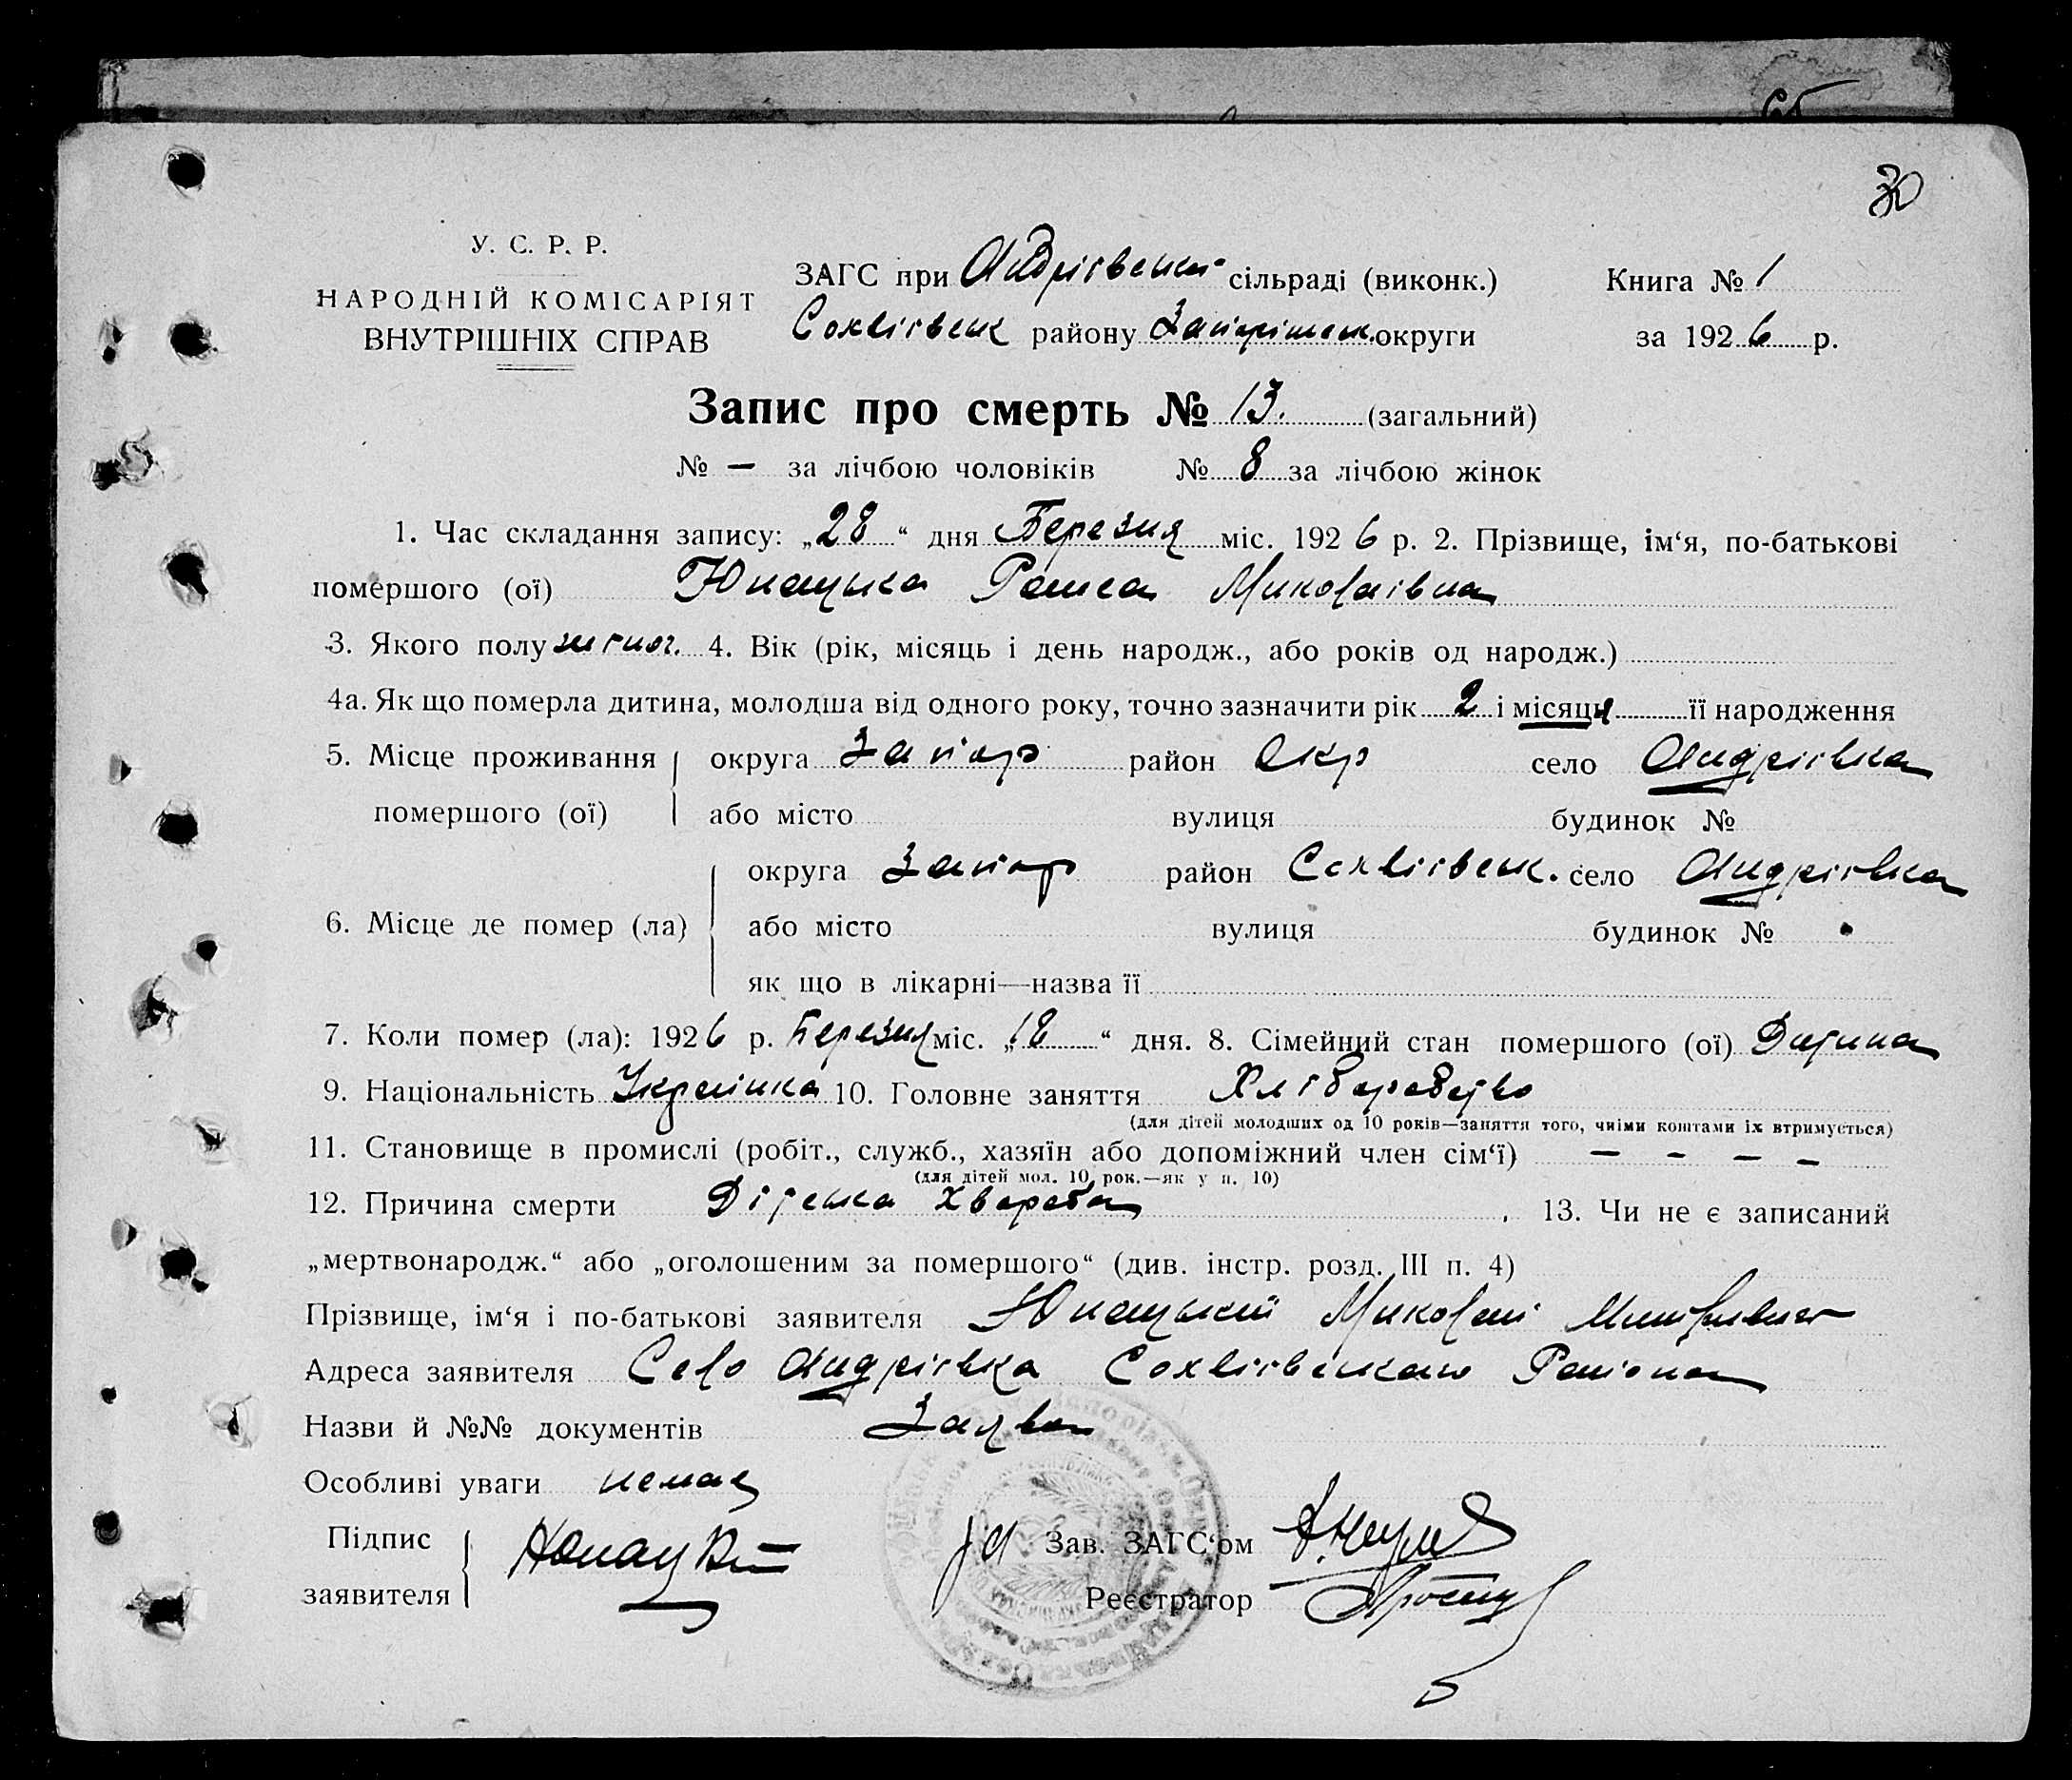 30
У. С. Р. Р.
НАРОДНІЙ КОМІСАРІЯТ
ВНУТРІШНІХ СПРАВ
ЗАГС при Андріівській сільраді (виконк.)
Книга № 1
Софіівськ району Запоріжськ. округи
за 1926 р.
Запис про смерть № 13. (загальний)
№ — за лічбою чоловіків № 8 за лічбою жінок
1. Час складання запису: „28“ дня Березня міс. 1926 р. 2. Прізвище, ім‘я, по-батькові
помершого (ої) Юнацька Раиса Миколаівна
3. Якого полу жіноч. 4. Вік (рік, місяць і день народж., або років од народж.)
4а. Як що померла дитина, молодша від одного року, точно зазначити рік 2 і місяця її народження
5. Місце проживання округа Запор район Окр село Андріівка
помершого (ої) або місто вулиця будинок №
округа Запор район Софіівськ. село Андріівка
6. Місце де помер (ла) або місто вулиця будинок №
як що в лікарні—назва її
7. Коли помер (ла): 1926 р. Березня міс. „18“ дня. 8. Сімейний стан помершого (ої) Дитина
9. Національність Украінка 10. Головне заняття Хліборобство
(для дітей молодших од 10 років—заняття того, чиіми коштами іх втримується)
11. Становище в промислі (робіт., служб., хазяїн або допоміжний член сім‘ї) — - — –
(для дітей мол. 10 рок.—як у п. 10)
12. Причина смерти Дітська хвороба . 13. Чи не є записаний
„мертвонародж.“ або „оголошеним за помершого“ (див. інстр. розд. III п. 4)
Прізвище, ім‘я і по-батькові заявителя Юнацький Миколай
Адреса заявителя Село Андріівка Софіівського Раіона
Назви й №№ документів Заява
Особливі уваги немає
Підпис Юнацкий
заявителя
за Зав. ЗАГС‘ом
Реєстратор